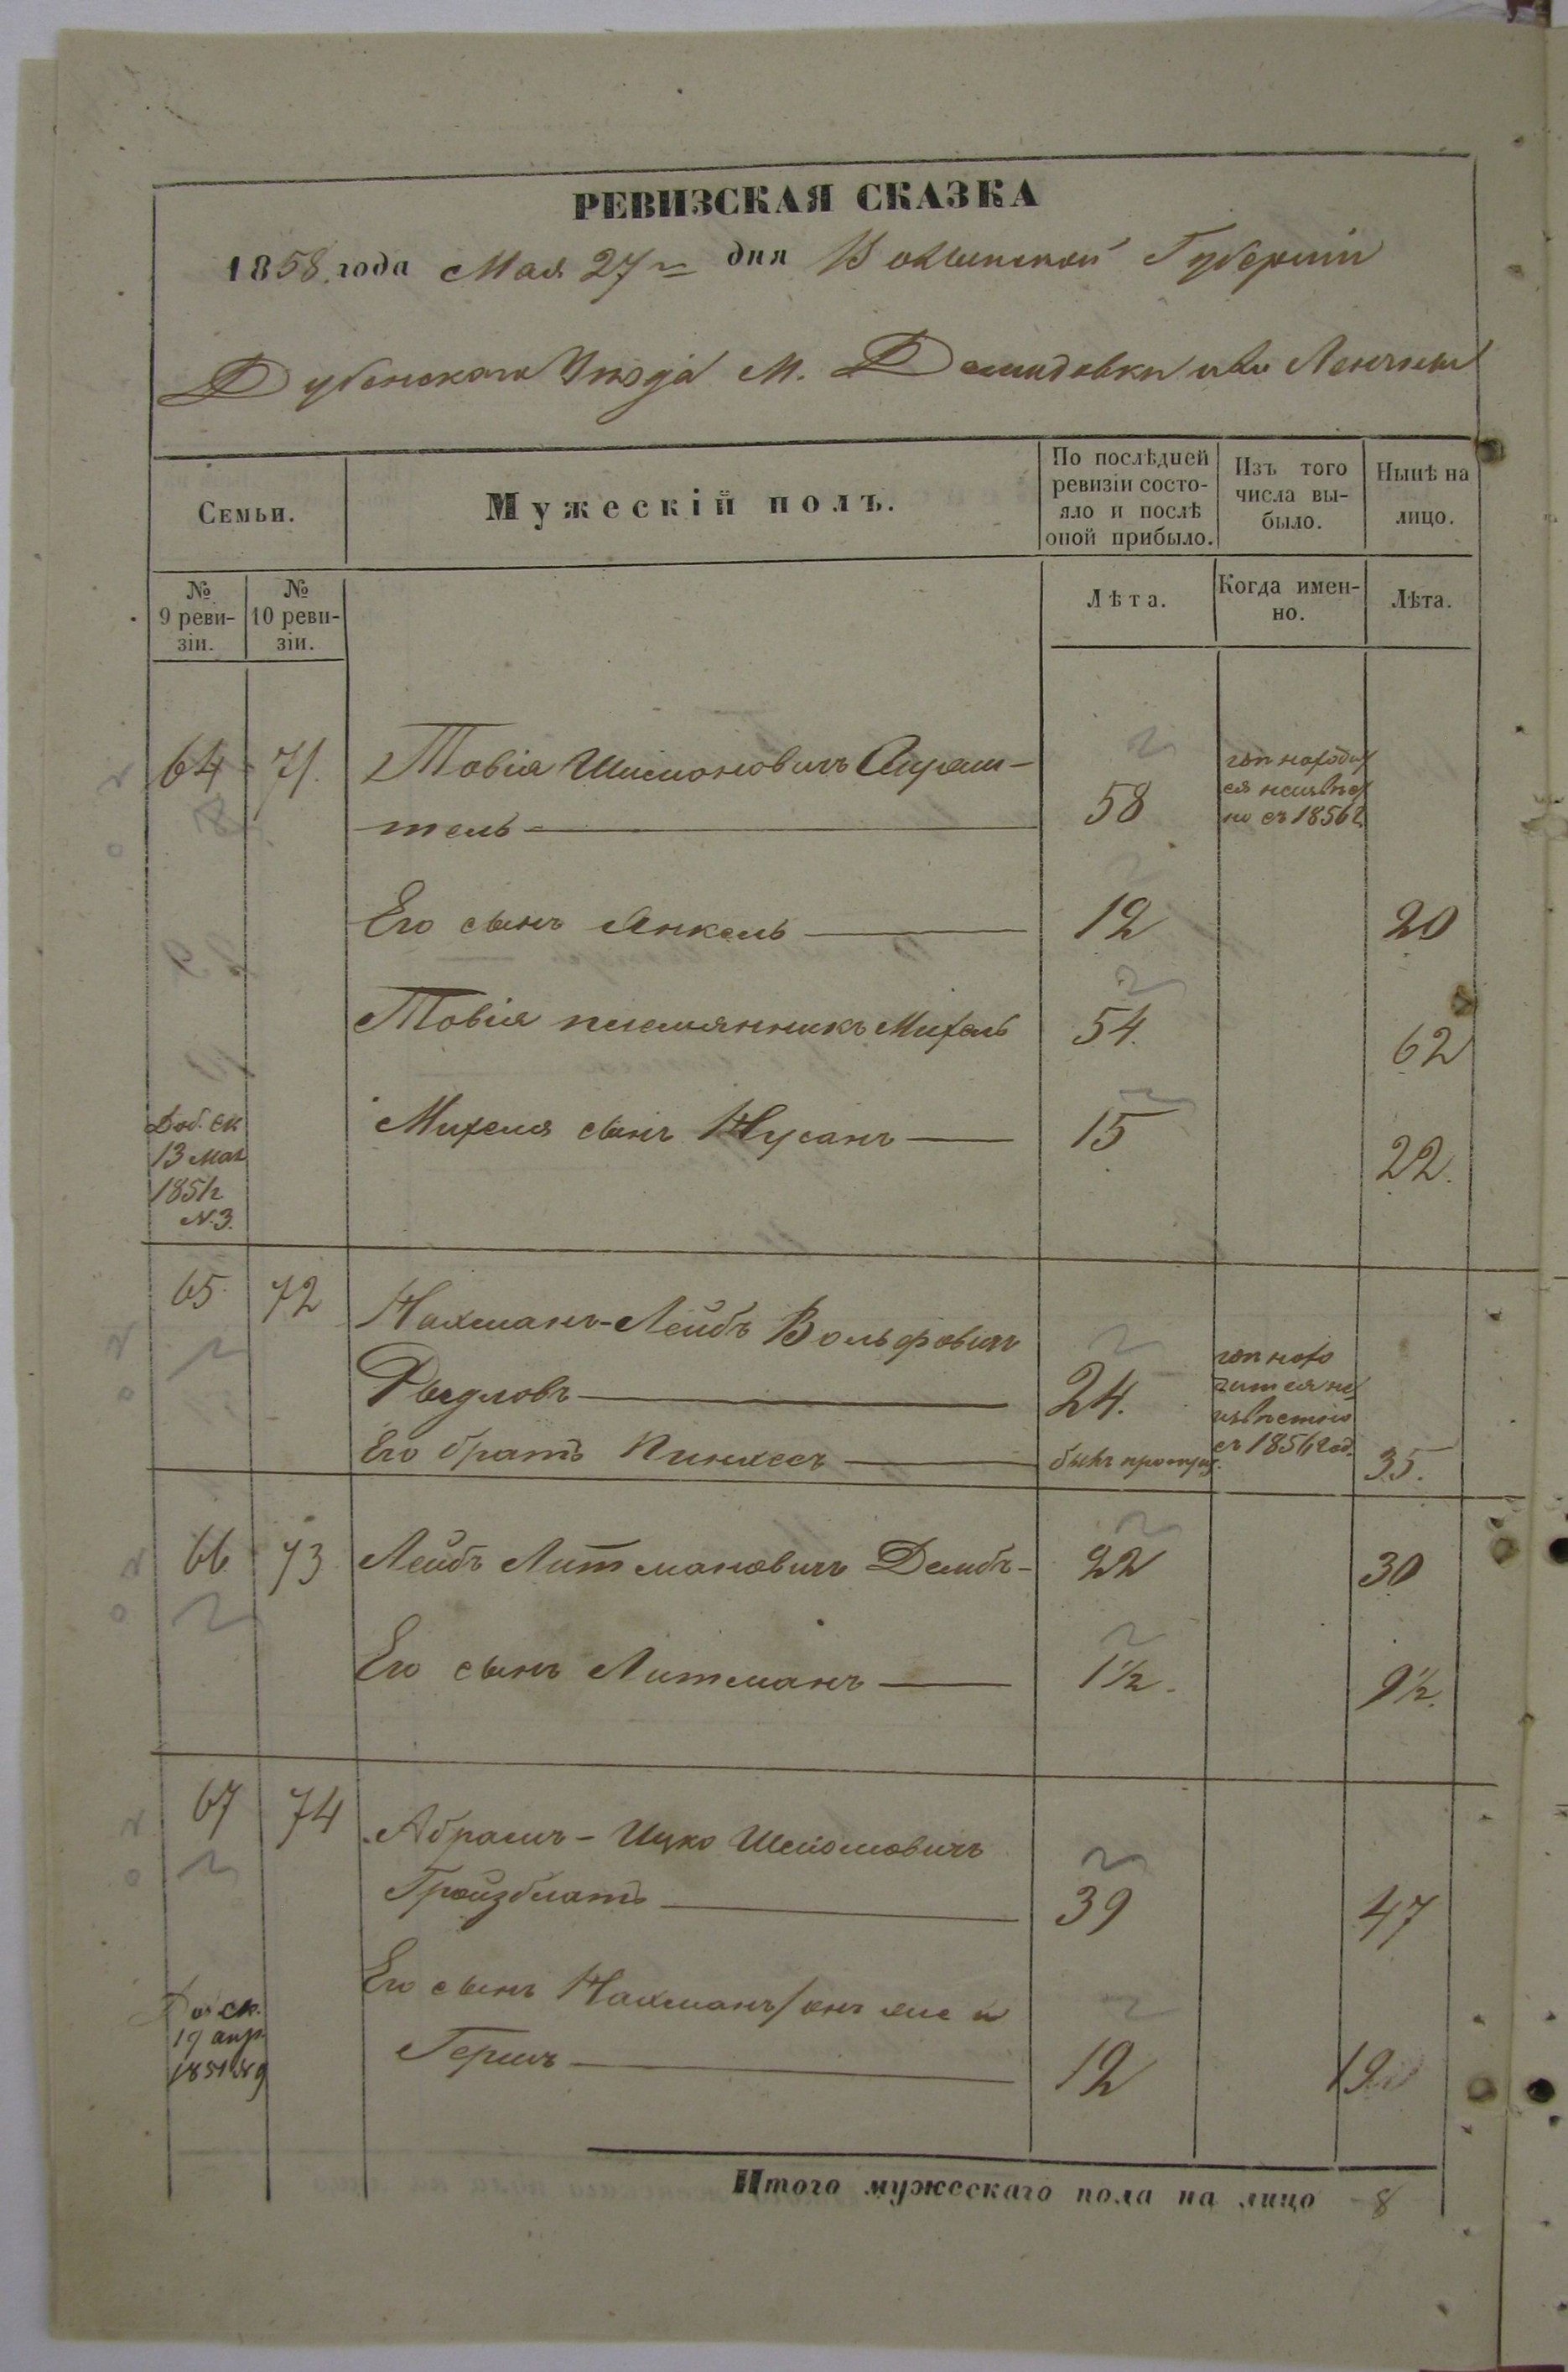 РЕВИЗСКАЯ СКАЗКА
1858 года Мая 27 дня Волынской Губерніи
Дубенскаго Уезда М. Демидовки
Семьи.
Мужескій полъ.
По послѣдней ревизіи состо-
яло и послѣ
оной прибыло.
Изъ того
числа вы-
было.
Нынѣ на
лицо.
№
9 реви-
зіи.
№
10 реви-
зіи.
Лѣта.
Когда имен-
но.
Лѣта.
64 71. Товія Шимоновичъ
тель 58
гдѣ находит
ся неизвѣст
но съ 1856 г.
Его сынъ Янкель 12 20
Товія племянникъ Михель 54. 62
Михеля сынъ Нусанъ 15 22.
Доб. ск
13 мая
1851 г
N. 3.
65. 72 Нахманъ-Лейбъ Вольфовичъ
24.
гдѣ нахо
дится не
извѣстно
съ 1856 год.
Его братъ Пинхесъ былъ пропущ. 35.
66 73 Лейбъ Литмановичъ Дембъ- 22 30
Его сынъ Литманъ 1½. 9½.
67 74 Абрамъ-Ицко Шеломовичъ
Гройзблатъ 39 47
Его сынъ Нахманъ/онъ же и
Гершъ 12 19
Доб ск.
19 апр.
1851 № 9
Итого мужескаго пола на лицо 8